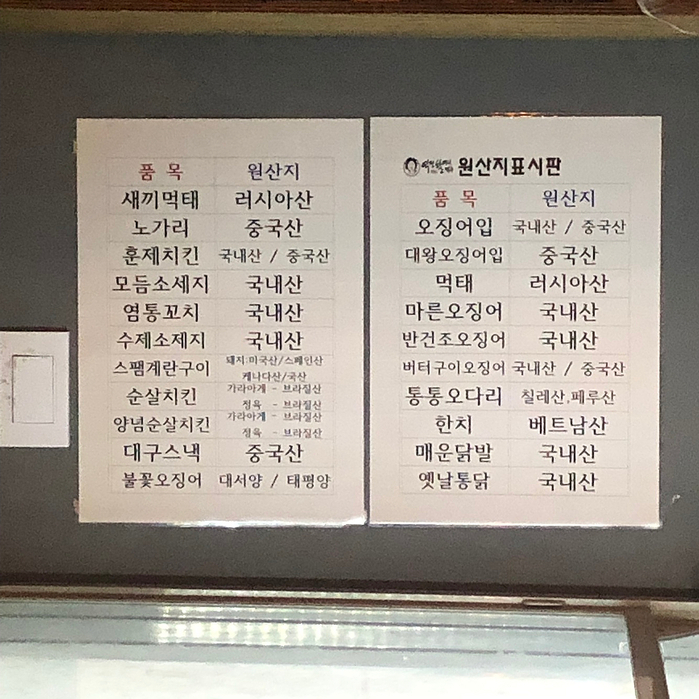 품 목 원산지
새끼먹태 러시아산
노가리 중국산
훈제치킨 국내산 / 중국산
모듬소세지 국내산
염통꼬치 국내산
수제소제지 국내산
스팸계란구이 돼지:미국산/스페인산
케나다산/국산
순살치킨 가라아게 - 브라질산
정육 - 브라질산
양념순살치킨 가라아게 - 브라질산
정육 - 브라질산
대구스낵 중국산
불꽃오징어 대서양 / 태평양
원산지표시판
품 목 원산지
오징어입 국내산 / 중국산
대왕오징어입 중국산
먹태 러시아산
마른오징어 국내산
반건조오징어 국내산
버터구이오징어 국내산 / 중국산
통통오다리 칠레산,페루산
한치 베트남산
매운닭발 국내산
옛날통닭 국내산